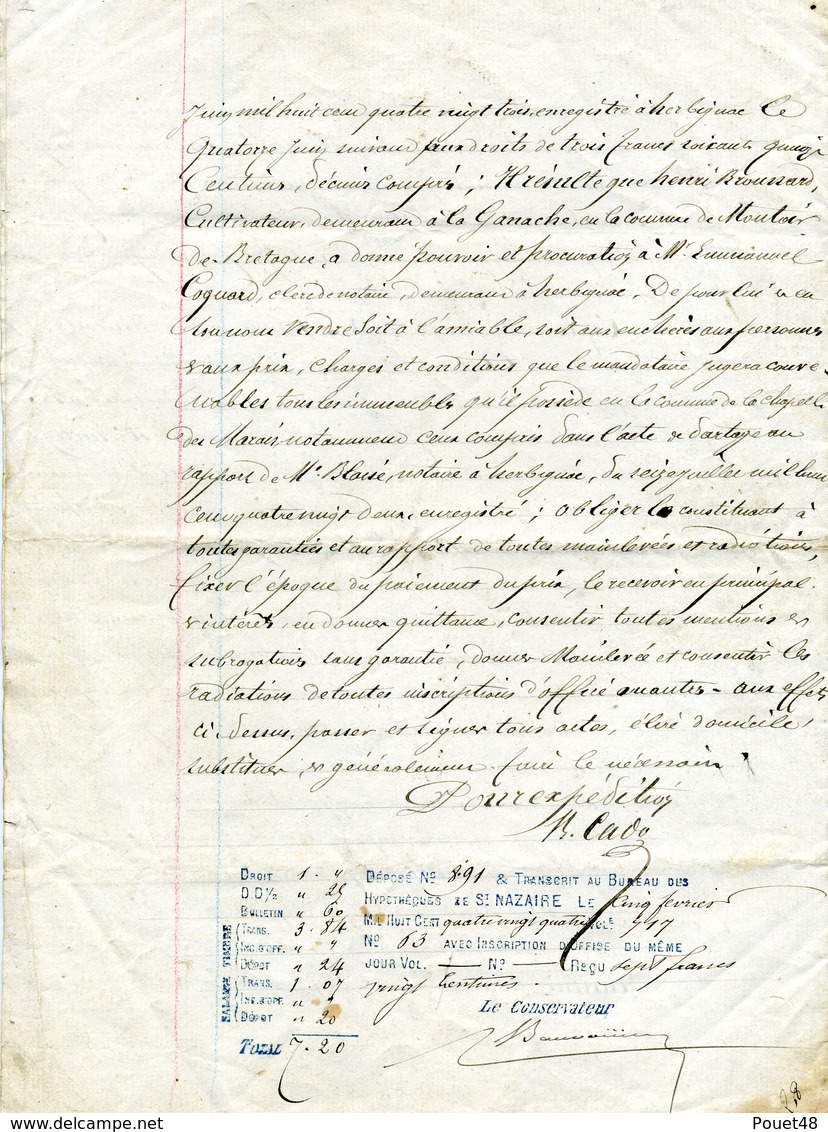 Juin mil huit cent quatre vingt trois, enregistré à herbignac le
quatorze Juin suivant aux droits de trois francs soixante quinze
Centimes, décimes compris ; Il résulte que henri Broussard,
Cultivateur, demeurant à la Ganache, en la commune de Montoir
de Bretagne, a donné pouvoir et procuration à Mr Emmanuel
Coquard, clerc de notaire, demeurant à herbignac, De pour lui & en
son nom Vendre soit à l'amiable, soit aux enchères aux personnes
& aux prix, charges et conditions que le mandataire jugera conve-
nables tous les immeubles qu'il possède en la commune de la chapelle
des Marais, notamment ceux compris dans l'acte de partage au
rapport de Me Blaise, notaire à herbignac, du seize juillet mil huit
cent quatre vingt deux, enregistré ; obliger le constituant à
toutes garanties et au rapport de toutes mainlevées et radiations,
fixer l'époque du paiement du prix, le recevoir en principal
& intérêts, en donner quittance, consentir toutes mentions et
subrogations sans garantie, donner Mainlevée et consentir les
radiations de toutes inscriptions d'office ... aux effets
ci-dessus, passer et signer tous actes, élire domicile,
substituer, et généralement faire le nécessaire
Pour expédition
R. Cado
DROIT 1 . "
D.D½ " 25
BULLETIN " 60
TRANS. 3 . 84
INC. D'OFF. " "
DÉPOT " 24
TRANS. 1 . 07
INC. D'OFF. " "
DÉPOT " 20
TOTAL 7 . 20
SALAIRE TIMBRE
DÉPOSÉ No 891 & TRANSCRIT AU BUREAU DES
HYPOTHÈQUES DE ST NAZAIRE LE cinq février
MIL HUIT CENT quatre vingt quatre VOLE 717
No 63 AVEC INSCRIPTION D'OFFISE DU MÊME
JOUR VOL. — No — REÇU sept francs
vingt Centimes.
Le Conservateur
28
Pouet48